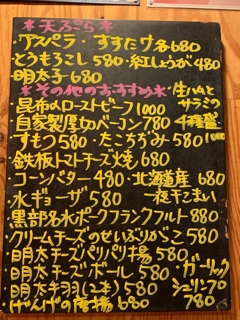 ＊天ぷら＊
・アスパラ・すすたけ各680
・とうもろこし580・紅しょうが480
・明太子680
＊その他のおすすめ＊
・生ハムとサラミの4種盛
・昆布のローストビーフ1000
・自家製厚切ベーコン780
・すもつ580・たこちぢみ580
・鉄板トマトチーズ焼680
・コーンバター480・北海道産680
一夜干こまい
・水ギョーザ580
・黒部名水ポークフランクフルト880
・クリームチーズのせいぶりがっこ580
・明太チーズパリパリ揚580
・明太チーズボール580・ガーリックシュリンプ
・明太手羽(2本)580
780
・げんげの唐揚680